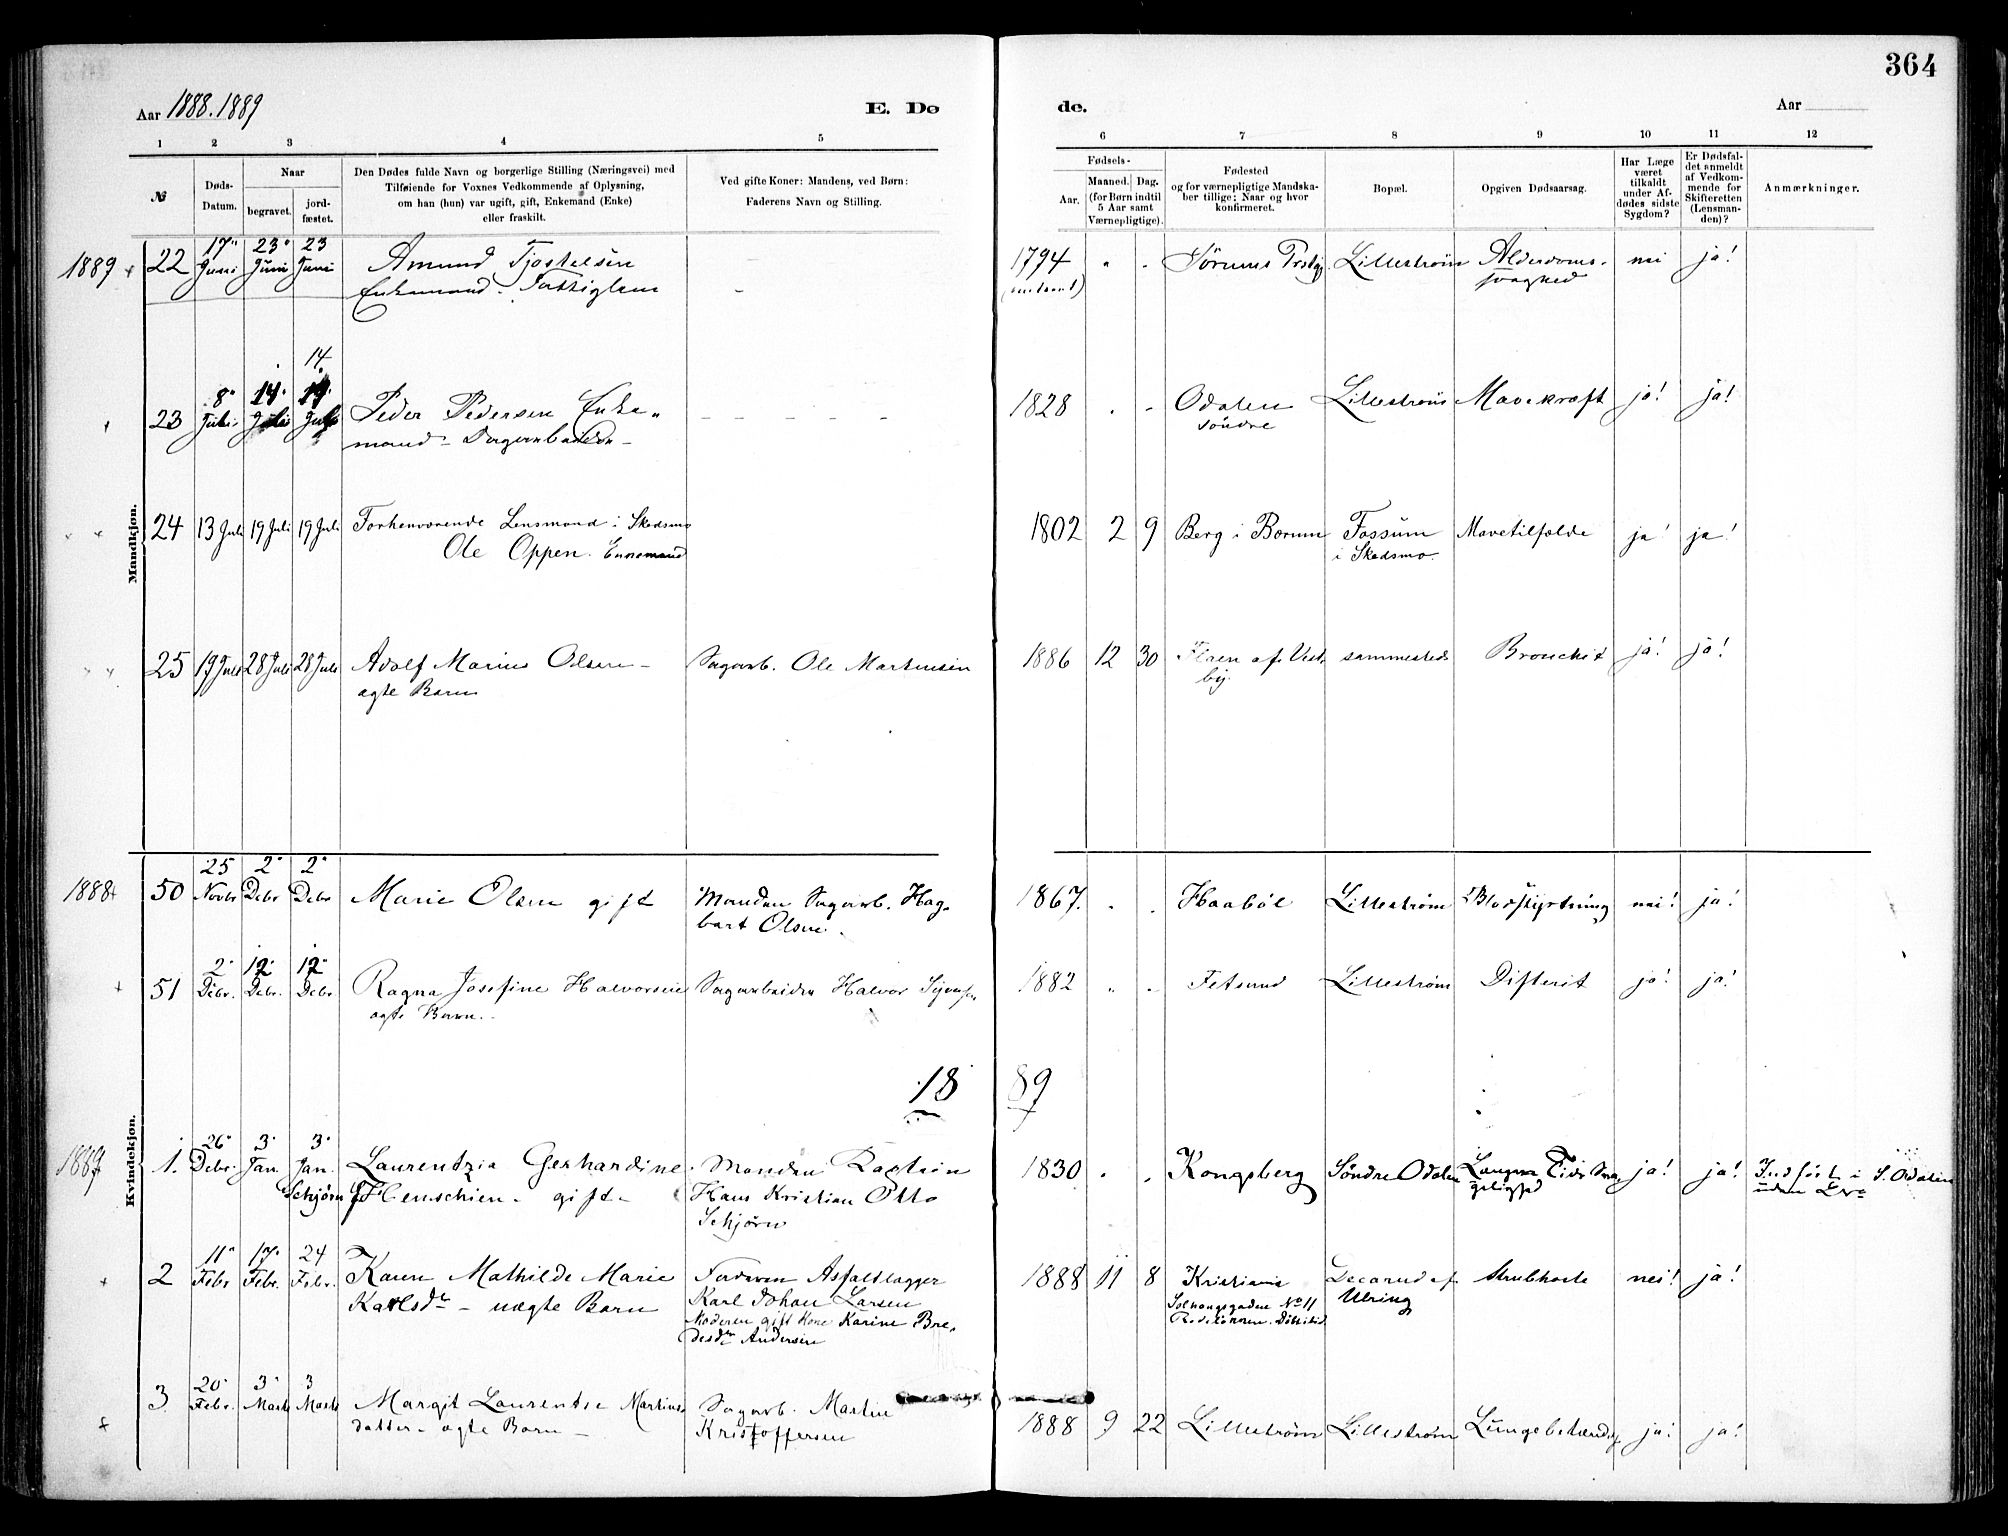 364
Aar 1888.1889
E. Dø
de.
Aar
1 2 3 4 5 6 7 8 9 10 11 12
№
Døds-
Datum.
Naar
begravet.
jord-
fæstet.
Den Dødes fulde Navn og borgerlige Stilling (Næringsvei) med
Tilføiende for Voxnes Vedkommende af Oplysning,
om han (hun) var ugift, gift, Enkemand (Enke)
eller fraskilt.
Ved gifte Koner: Mandens, ved Børn:
Faderens Navn og Stilling.
Fødsels-
Aar.
Maaned. Dag.
(for Børn indtil
5 Aar samt
Værnepligtige).
Fødested
og for værnepligtige Mandska-
ber tillige: Naar og hvor
konfirmeret.
Bopæl.
Opgiven Dødsaarsag.
Har Læge
været
tilkaldt
under Af-
dødes sidste
Sygdom?
Er Dødsfal-
det anmeldt
af Vedkom-
mende for
Skifteretten
(Lensman-
den)?
Anmærkninger.
Mandkjøn.
1889
22 17 Juni 23 Juni 23 Juni
Amund Tjostelsen
Enkemand. Fattiglem
1794 Sørums Lillestrøm Alderdoms-
svaghed nei ja!
23 8 Juli 14 Juli 14 Juli
Peder Pedersen Enke-
mand - Sagarbeider -
1828 Odalen
søndre Lillestrøm Mavekræft ja! ja!
24 13 Juli 19 Juli 19 Juli
Forhenværende Lensmand i Skedsmo
Ole Oppen. Enkemand
1802 2 9 Berg i Bærum Fossum
i Skedsmo. Mavetilfælde ja! ja!
25 19 Juli 28 Juli 28 Juli
Adolf Marius Olsen -
ægte Barn
Sagarb. Ole Martinsen
1886 12 30 af Vest-
by. sammesteds Bronchit ja! ja!
Kvindekjøn.
1888
50 25 Novbr 2 Debr 2 Debr
Marie Olsen gift
Manden Sagarb. Hag-
bart Olsen.
1867. Haabøl Lillestrøm Blodstyrtning nei! ja!
51 2 Debr. 12 Debr. 12 Debr
Ragna Josefine Halvorsen
ægte Barn.
Sagarbeider Halvor
1882 Fetsund Lillestrøm Difterit ja! ja!
18 89
1889
1. 26 Debr. 3 Jan. 3 Jan.
Laurentzia Gerhardine
Schjørn f Henschien - gift -
Manden Kaptein
Hans Kristian Otto
Schjørn
1830 Kongsberg Søndre Odalen Længere Tids Sva-
gelighed ja! ja! Indført i S. Odalen
uden
2 11 Febr 17 Febr. 24 Febr.
Karen Mathilde Marie
Karlsdr - uægte Barn
Faderen Asfaltlægger
Karl Johan Larsen
Moderen gift Kone Karine Bre-
desdr Andersen
1888 11 8 Kristiania
No 11
af
Ulring Strubhoste nei! ja!
3 20 Febr. 3 Marts 3 Marts
Margit Laurentse Martins-
datter - ægte Barn -
Sagarb. Martin
Kristoffersen
1888 9 22 Lillestrøm Lillestrøm Lungebetændelse ja! ja!